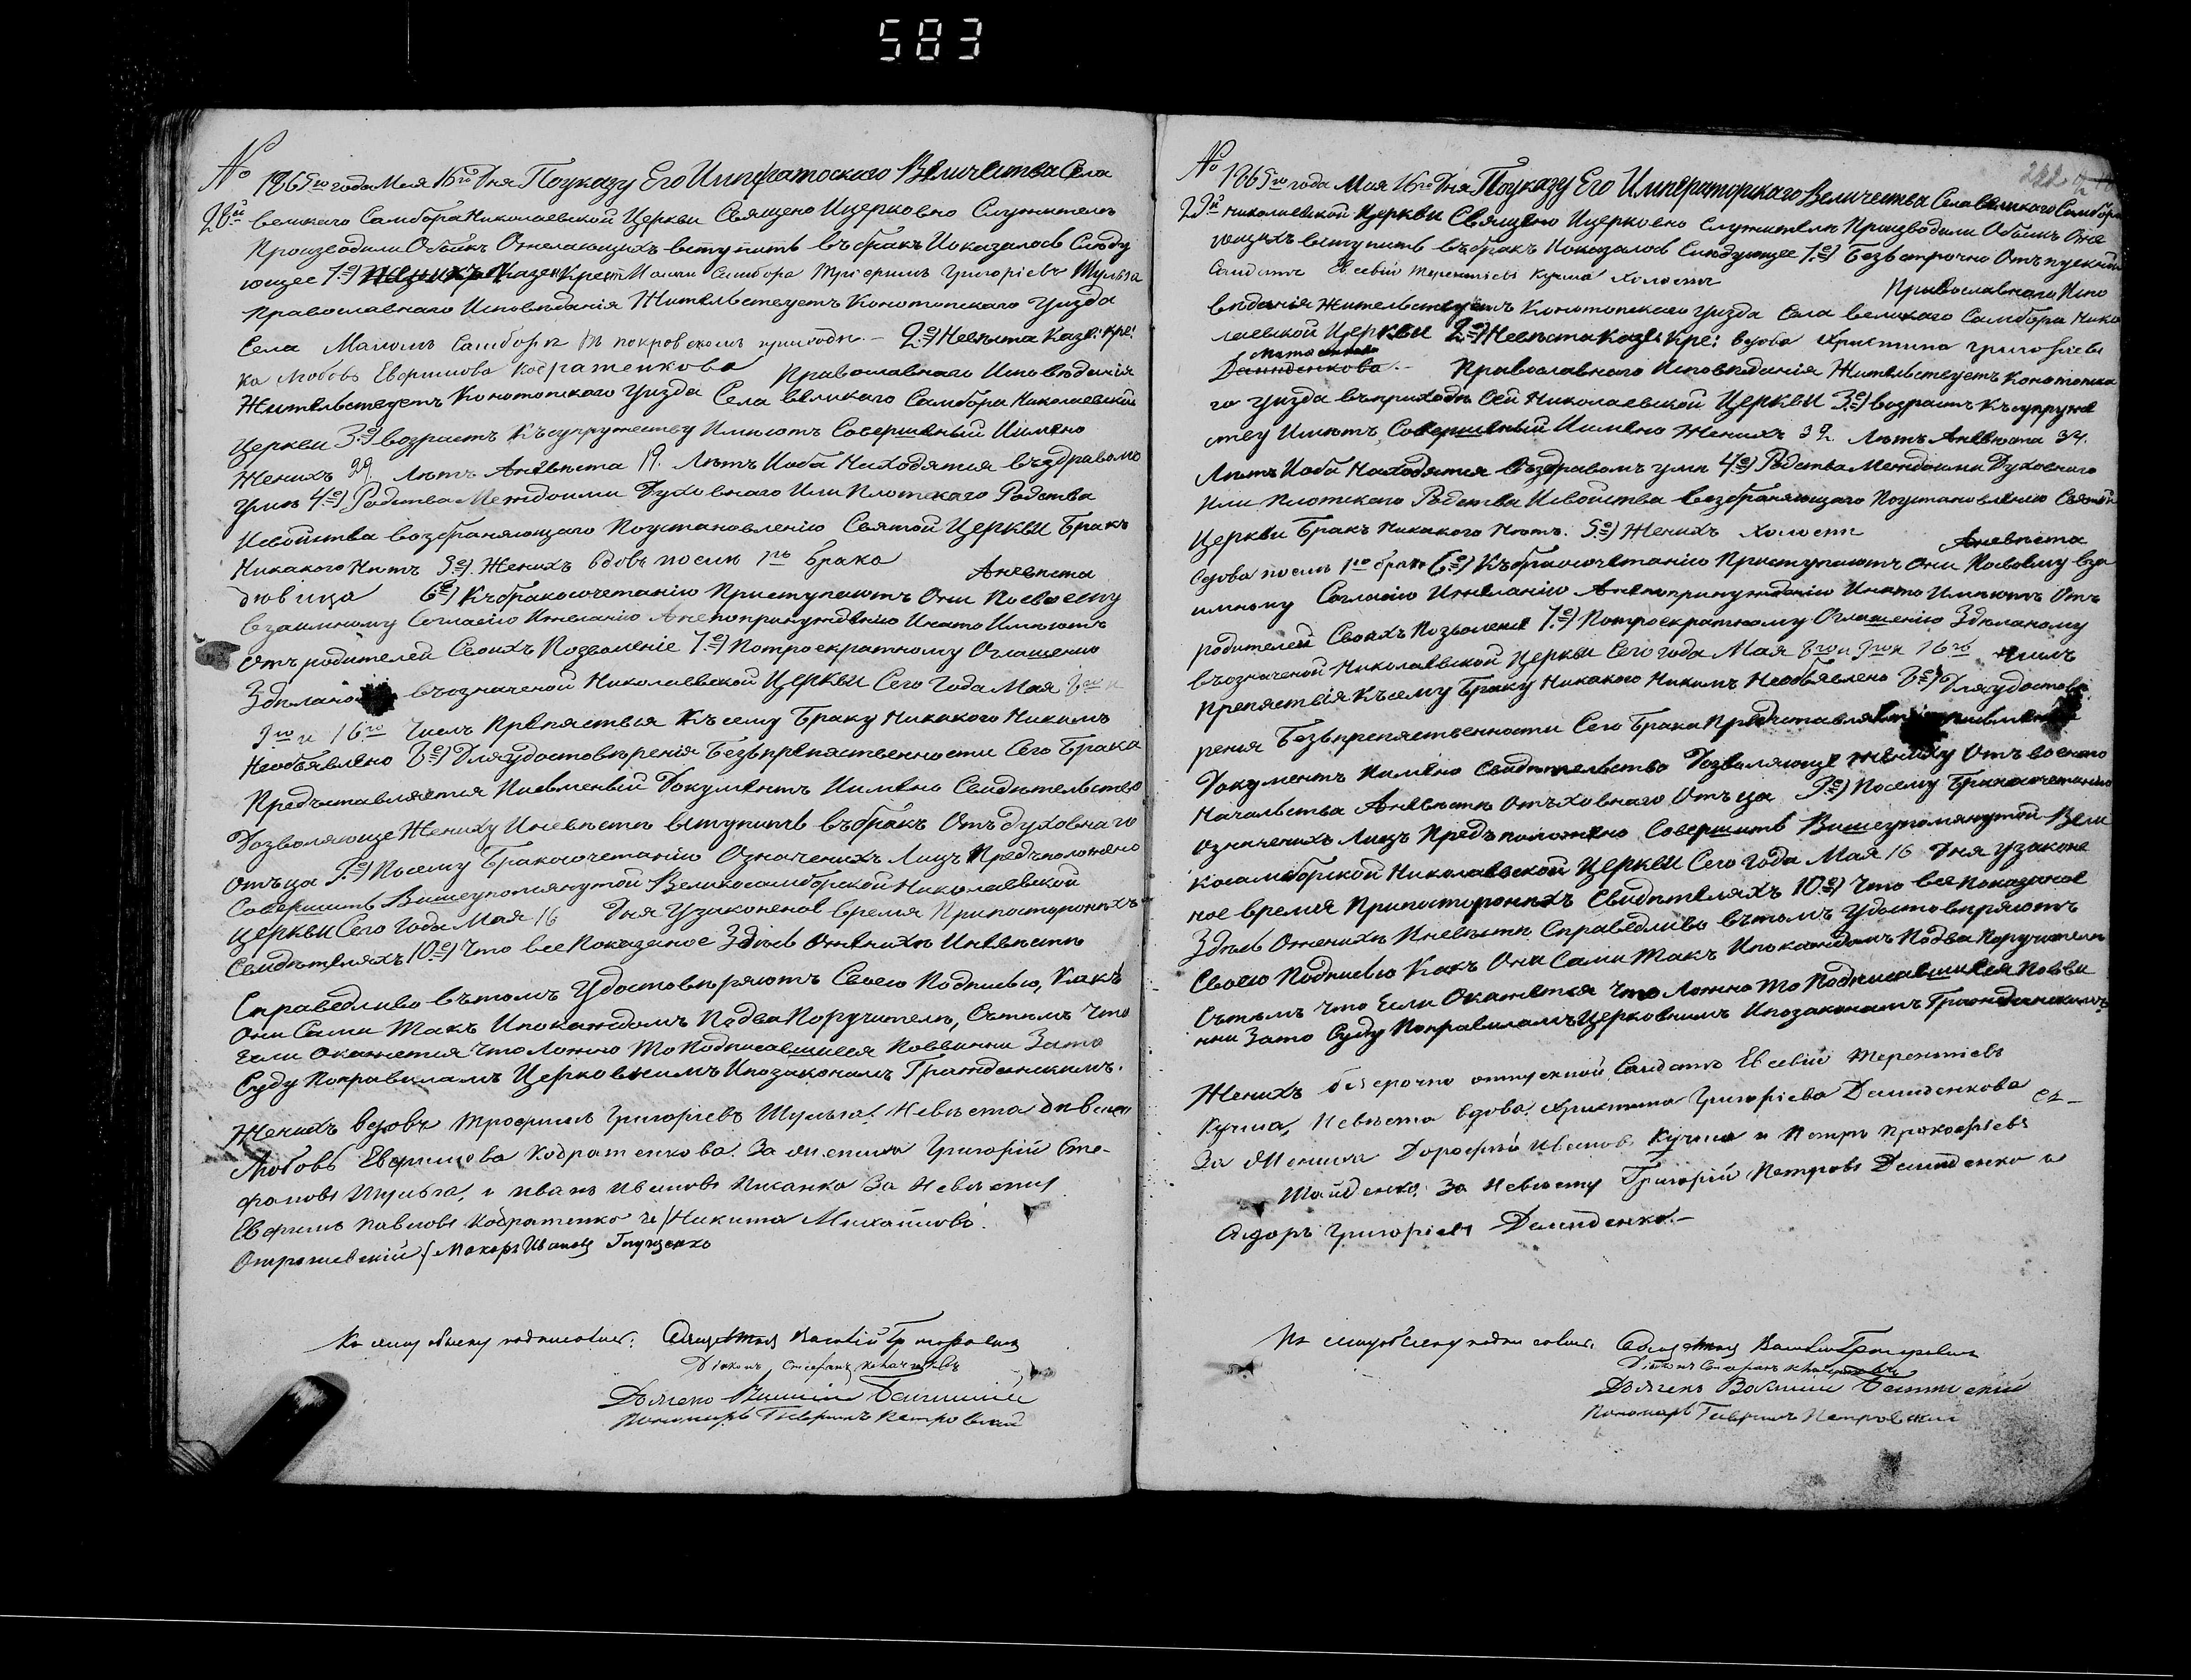 583
№ 1865го года Мая 16го Дня По указу Его Императоскаго Величества Села
28й великаго Самбора Николаевской Церкви Священо Ицерковно Служители
Производили Обыскъ Ожелающихъ вступить въбракъ Иоказалось Слѣду
ющее 1.е) Казен: Крест: Малаго Самбора Григоріевъ Шульга
православнаго Исповѣданія Жительствуетъ Конотопскаго Уѣзда
Села Маломъ Самборѣ въ покровскомъ приходѣ. – 2.е) Невѣста Казе: Кре:
ка Любовь Евфимова Кодратенкова Православнаго Исповѣданія
Жительствуетъ Конотопскаго Уѣзда Села Великаго Самбора Николаевской
Церкви 3.е) возрастъ Късупружеству Имѣютъ Совершеный Иимено
Женихъ 29 Лѣтъ Аневѣста 19. Лѣтъ Иоба Находятся въздравомъ
умѣ 4.е) Родства Междоими Духовнаго Или Плотскаго Родства
Исвойства возбраняющаго Поустановлению Святой Церкви Бракъ
Никакого Нѣтъ 5.е) Женихъ вдовъ послѣ 1го брака Аневѣста
дѣвица 6.е) Къбракосочетанію Приступаютъ Они Посвоему
взаимному Согласію Ижеланію Анепопринужденію Инато Имѣютъ
Отъ родителей Своихъ Позволеніе 7.е) Потроекратному Оглашению
Здѣлано въозначеной Николаевской Церкви Сего Года Мая 8го и
9го и 16го Числъ Препяствія Късему Браку Никакого Никимъ
Необъявлено 8.е) Дляудостовѣренія Безъпрепяственности Сего Брака
Предъставляется Писменый Документъ Иимено Свидѣтельство
Дозволяюще Жениху Иневѣстѣ вступить въбракъ Отъ духовнаго
отъца 9.е) Посему Бракосочетанію Означенихъ Лицъ Предъположено
Совершить Вишеупомянутой Великосамборской Николаевской
Церкви Сего Года Мая 16 Дня Узаконеное время Припостороннихъ
Свидѣтеляхъ 10.е) Что все Показаное Здѣсь Оженихѣ Иневѣстѣ
Справедливо вътомъ Удостовѣряютъ Своею Подписью, Какъ
Они Сами Такъ Ипокаждомъ Подва Поручителѣ, Сътѣмъ Что
Если Окажется Что Ложно То Подписавшиеся Повинни Зато
Суду Поправиламъ Церковнимъ Ипозаконамъ Гражданскимъ.
Женихъ вдовъ Трофимъ Григоріевъ Шульга. Невѣста дѣвица
Любовь Евфимова Кодратенкова. За жениха Григорій Сте-
фановъ Шульга, и Иванъ Ивановъ За невѣсту
Евфимъ Павловъ Кодратенко и Никита Михайловъ
Макаръ Ивановъ
Къ сему обыску подписались: Василій
Діаконъ Стефанъ
Василій
Пономарь Гавріилъ Петровскій
№ 1865го года Мая 16го Дня По указу Его Императорскаго Величества Села Великаго Самбора
29й Николаевской Церкви Священо Ицерковно Служители Производили Обыскъ Оже
лающихъ вступить въбракъ Показалось Слѣдующее 1.е) Безъсрочно Отъпускной
Солдатъ Евсевій Терентіевъ Кучма холостъ Православнаго Испо
вѣданія Жительствуетъ Конотопскаго Уѣзда Села великаго Самбора Нико
лаевской Церкви 2.е) Невѣста Казе: Кре: вдова Христина Григоріева
Демиденкова. – Православнаго Исповѣданія Жительствуетъ Конотопска
го Уѣзда въприходѣ Сей Николаевской Церкви 3.е) возрастъ Късупруже
ству Имѣютъ Совершеный Иимено Женихъ 32 Лѣтъ Аневѣста 34.
Лѣтъ Иоба Находятся въздравомъ умѣ 4.е) Родства Междоими Духовнаго
Или Плотскаго Родства Исвойства возбраняющаго Поустановлению Святой
Церкви Бракъ Никакого Нѣтъ. 5.е) Женихъ холостъ Аневѣста
вдова послѣ 1го брака 6.е) Къбракосочетанію Приступаютъ Они Посвоему вза
имному Согласію Ижеланію Анепопринужденію Инато Имѣютъ Отъ
родителей Своихъ Позволеніе 7.е) Потроекратному Оглашенію Здѣланому
въозначеной Николаевской Церкви Сего года Мая 8го и 9го и 16го Числъ
Препяствія Късему Браку Никакого Никимъ Необъявлено 8.е) Дляудостовѣ
ренія Безъпрепяственности Сего Брака
Документъ Иимено Свидѣтельство Дозволяюще жениху Отъ военаго
Начальства Аневѣстѣ Отъховнаго Отъца 9.е) Посему Бракосочетанію
означенихъ Лицъ Предъположено Совершить Вишеупомянутой Вели
косамборской Николаевской Церкви Сего Года Мая 16 Дня Узаконе
ное время Припостороннихъ Свидѣтеляхъ 10.е) Что все Показаное
Здѣсь Оженихѣ Иневѣстѣ Справедливо вътомъ Удостовѣряютъ
Своею Подписью Какъ Они Сами Такъ Ипокаждомъ Подва Поручителѣ
Сътѣмъ Что Если Окажется Что Ложно То Подписавшиеся Пови
нни Зато Суду Поправиламъ Церковнимъ Ипозаконамъ Гражданскимъ
Женихъ безсрочно отпускной Солдатъ Евсевій Терентіевъ
Кучма, Невѣста вдова Христина Григоріева Демиденкова
За Жениха Дорофей Ивановъ Кучма и Петръ Прокофіевъ
За Невѣсту Григорій Петровъ Демиденко и
Сидоръ Григоріевъ Демиденко. –
Къ сему обыску подписались: Василій
Діаконъ Стефанъ
Василій
Пономарь Гавріилъ Петровскій